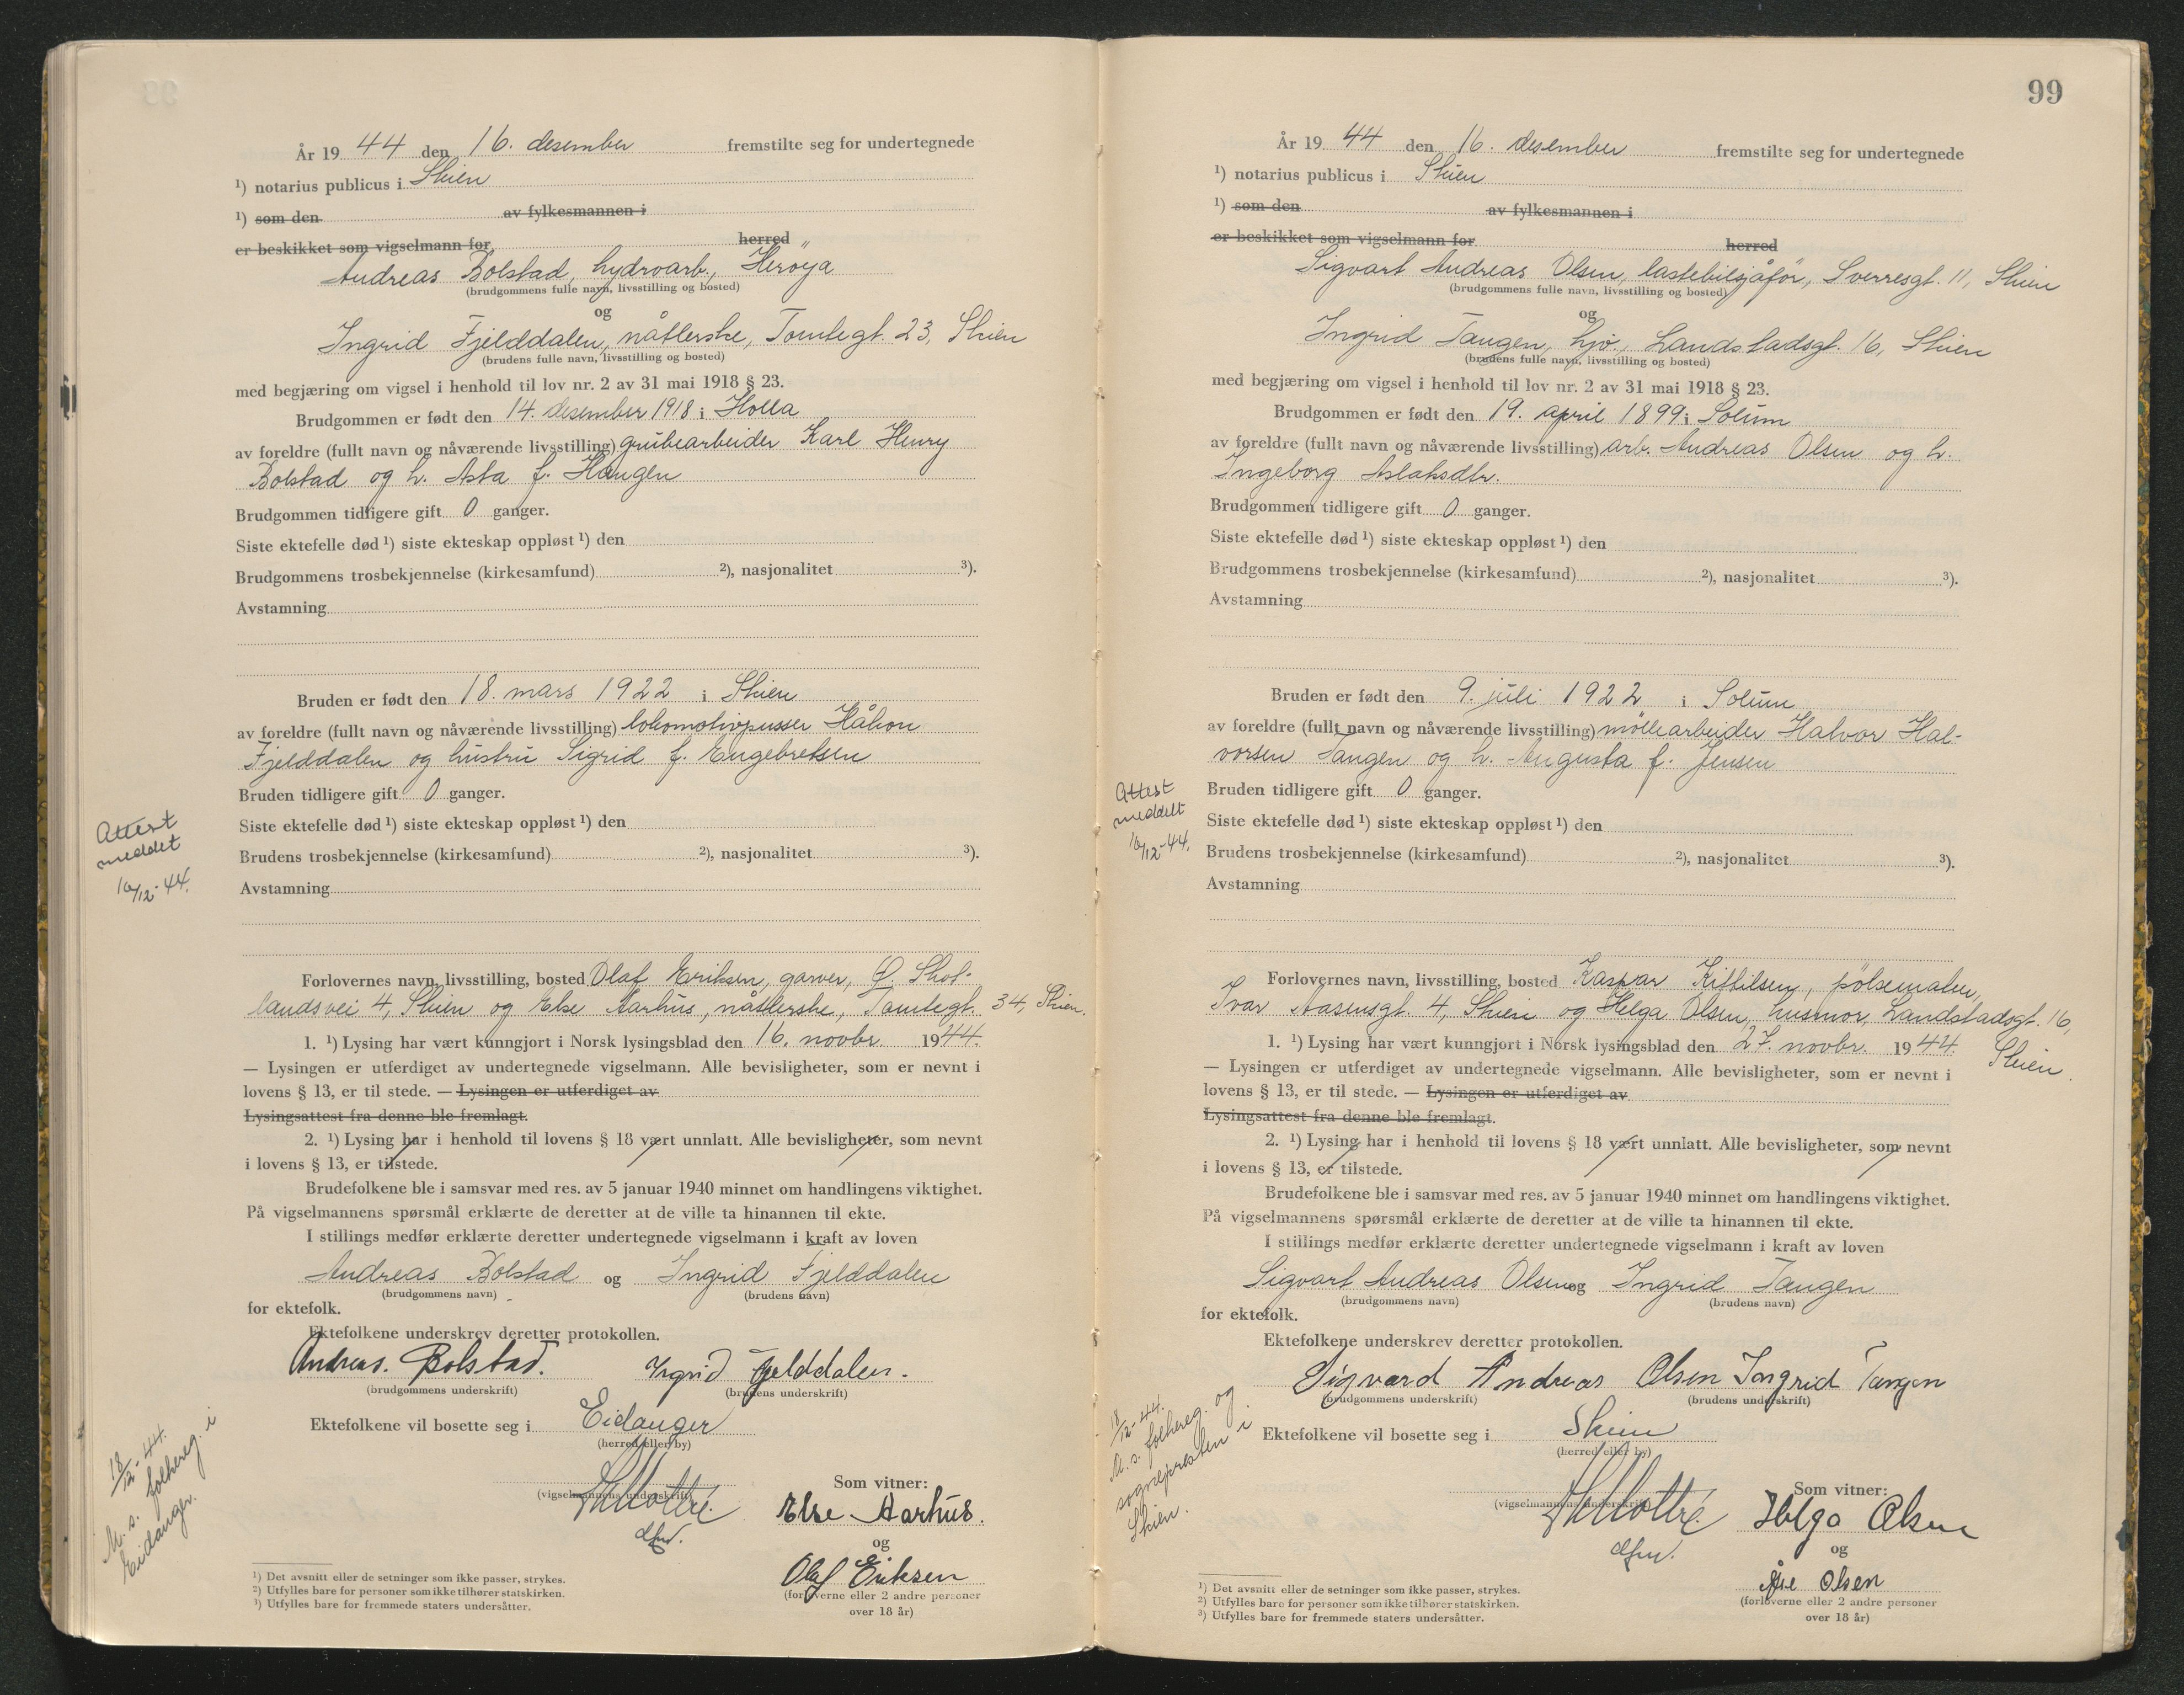 År 19 44 den 16. desember fremstilte seg for undertegnede
¹) notarius publicus i Skien
¹) som den av fylkesmannen i
er beskikket som vigselmann for herred
Andreas Bolstad, hydroarb., Herøya
(brudgommens fulle navn, livsstilling og bosted)
og
Ingrid Fjelddalen, nåtlerske, Tomtegt. 23, Skien
(brudens fulle navn, livsstilling og bosted)
med begjæring om vigsel i henhold til lov nr. 2 av 31 mai 1918 § 23.
Brudgommen er født den 14. desember 1918 i Holla
av foreldre (fullt navn og nåværende livsstilling) grubearbeider Karl Henry
Bolstad og h. Asta f. Haugen
Brudgommen tidligere gift 0 ganger.
Siste ektefelle død ¹) siste ekteskap oppløst ¹) den
Brudgommens trosbekjennelse (kirkesamfund) ²), nasjonalitet ³).
Avstamning
Bruden er født den 18. mars 1922 i Skien
av foreldre (fullt navn og nåværende livsstilling) lokomotivpusser Håkon
Fjelddalen og hustru Sigrid f. Engebretsen
Bruden tidligere gift 0 ganger.
Siste ektefelle død ¹) siste ekteskap oppløst ¹) den
Brudens trosbekjennelse (kirkesamfund) ²), nasjonalitet ³).
Avstamning
Attest
meddelt
16/12-44.
Forlovernes navn, livsstilling, bosted Olaf Eriksen, garver, Ø. Skot-
landsvei 4, Skien og Else Aarhus, nåtlerske, Tomtegt. 34, Skien.
1. ¹) Lysing har vært kunngjort i Norsk lysingsblad den 16. novbr. 1944.
— Lysingen er utferdiget av undertegnede vigselmann. Alle bevisligheter, som er nevnt i
lovens § 13, er til stede. — Lysingen er utferdiget av
Lysingsattest fra denne ble fremlagt.
2. ¹) Lysing har i henhold til lovens § 18 vært unnlatt. Alle bevisligheter, som nevnt
i lovens § 13, er tilstede.
Brudefolkene ble i samsvar med res. av 5 januar 1940 minnet om handlingens viktighet.
På vigselmannens spørsmål erklærte de deretter at de ville ta hinannen til ekte.
I stillings medfør erklærte deretter undertegnede vigselmann i kraft av loven
Andreas Bolstad og Ingrid Fjelddalen
(brudgommens navn) (brudens navn)
for ektefolk.
Ektefolkene underskrev deretter protokollen.
Andreas. Bolstad. Ingrid Fjelddalen.
(brudgommens underskrift) (brudens underskrift)
Ektefolkene vil bosette seg i Eidanger
(herred eller by)
18/12-44.
M. s. folkereg. i
Eidanger.
Som vitner:
(vigselmannens underskrift)
Else Aarhus.
og
Olaf Eriksen
(forloverne eller 2 andre personer
over 18 år)
¹) Det avsnitt eller de setninger som ikke passer, strykes.
²) Utfylles bare for personer som ikke tilhører statskirken.
³) Utfylles bare for fremmede staters undersåtter.
99
År 19 44 den 16. desember fremstilte seg for undertegnede
¹) notarius publicus i Skien
¹) som den av fylkesmannen i
er beskikket som vigselmann for herred
Sigvart Andreas Olsen, lastebilsjåfør, Sverresgt. 11, Skien
(brudgommens fulle navn, livsstilling og bosted)
og
Ingrid Tangen, hjv., Landstadsgt. 16, Skien
(brudens fulle navn, livsstilling og bosted)
med begjæring om vigsel i henhold til lov nr. 2 av 31 mai 1918 § 23.
Brudgommen er født den 19. april 1899 i Solum
av foreldre (fullt navn og nåværende livsstilling) arb. Andreas Olsen og h.
Ingeborg Aslaksdtr.
Brudgommen tidligere gift 0 ganger.
Siste ektefelle død ¹) siste ekteskap oppløst ¹) den
Brudgommens trosbekjennelse (kirkesamfund) ²), nasjonalitet ³).
Avstamning
Bruden er født den 9. juli 1922 i Solum
av foreldre (fullt navn og nåværende livsstilling) møllearbeider Halvor Hal-
vorsen Tangen og h. Augusta f. Jensen
Bruden tidligere gift 0 ganger.
Siste ektefelle død ¹) siste ekteskap oppløst ¹) den
Brudens trosbekjennelse (kirkesamfund) ²), nasjonalitet ³).
Avstamning
Attest
meddelt
16/12-44.
Forlovernes navn, livsstilling, bosted Kaspar Kittilsen, pølsemaker,
Ivar Aasensgt. 4, Skien og Helga Olsen, husmor, Landstadsgt. 16,
Skien.
1. ¹) Lysing har vært kunngjort i Norsk lysingsblad den 27. novbr. 1944.
— Lysingen er utferdiget av undertegnede vigselmann. Alle bevisligheter, som er nevnt i
lovens § 13, er til stede. — Lysingen er utferdiget av
Lysingsattest fra denne ble fremlagt.
2. ¹) Lysing har i henhold til lovens § 18 vært unnlatt. Alle bevisligheter, som nevnt
i lovens § 13, er tilstede.
Brudefolkene ble i samsvar med res. av 5 januar 1940 minnet om handlingens viktighet.
På vigselmannens spørsmål erklærte de deretter at de ville ta hinannen til ekte.
I stillings medfør erklærte deretter undertegnede vigselmann i kraft av loven
Sigvart Andreas Olsen og Ingrid Tangen
(brudgommens navn) (brudens navn)
for ektefolk.
Ektefolkene underskrev deretter protokollen.
Sigvard Andreas Olsen Ingrid Tangen
(brudgommens underskrift) (brudens underskrift)
Ektefolkene vil bosette seg i Skien
(herred eller by)
18/12-44.
M. s. folkereg. og
sognepresten i
Skien.
Som vitner:
(vigselmannens underskrift)
Helga Olsen
og
Åse Olsen
(forloverne eller 2 andre personer
over 18 år)
¹) Det avsnitt eller de setninger som ikke passer, strykes.
²) Utfylles bare for personer som ikke tilhører statskirken.
³) Utfylles bare for fremmede staters undersåtter.